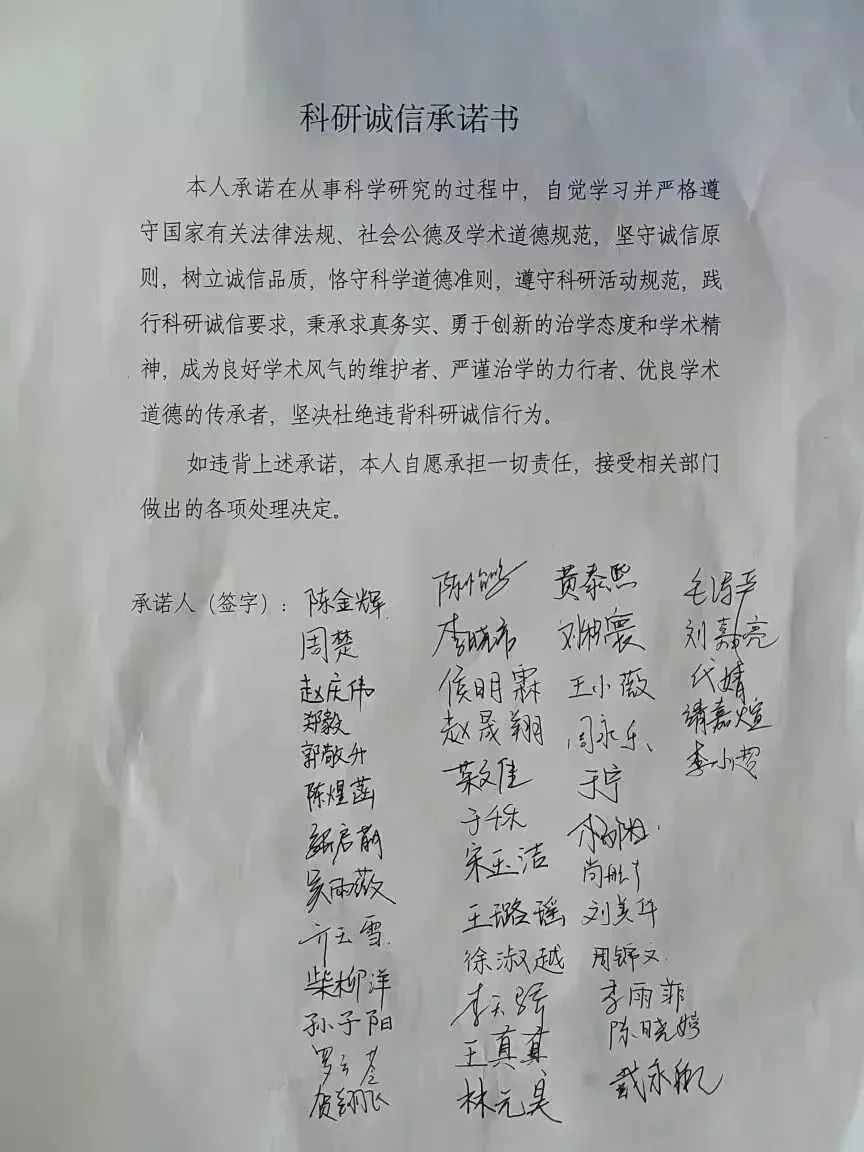 科研诚信承诺书
本人承诺在从事科学研究的过程中，自觉学习并严格遵
守国家有关法律法规、社会公德及学术道德规范，坚守诚信原
则，树立诚信品质，恪守科学道德准则，遵守科研活动规范，践
行科研诚信要求，秉承求真务实、勇于创新的治学态度和学术精
神，成为良好学术风气的维护者、严谨治学的力行者、优良学术
道德的传承者，坚决杜绝违背科研诚信行为。
如违背上述承诺，本人自愿承担一切责任，接受相关部门
做出的各项处理决定。
承诺人（签字）：陈金辉
周楚
赵庆伟
郑毅
郭敬升
陈煜菡
吴雨薇
齐玉雪
柴柳洋
孙子阳
贺翔飞
李晓布
侯明霖
赵晟翔
于秩
宋玉洁
王璐瑶
徐淑越
李天骄
王真真
林元昊
黄泰熙
王小薇
周永乐
于宁
刘美华
周锦文
李雨菲
陈晓婷
刘嘉亮
代婧
靖嘉煊
李小超